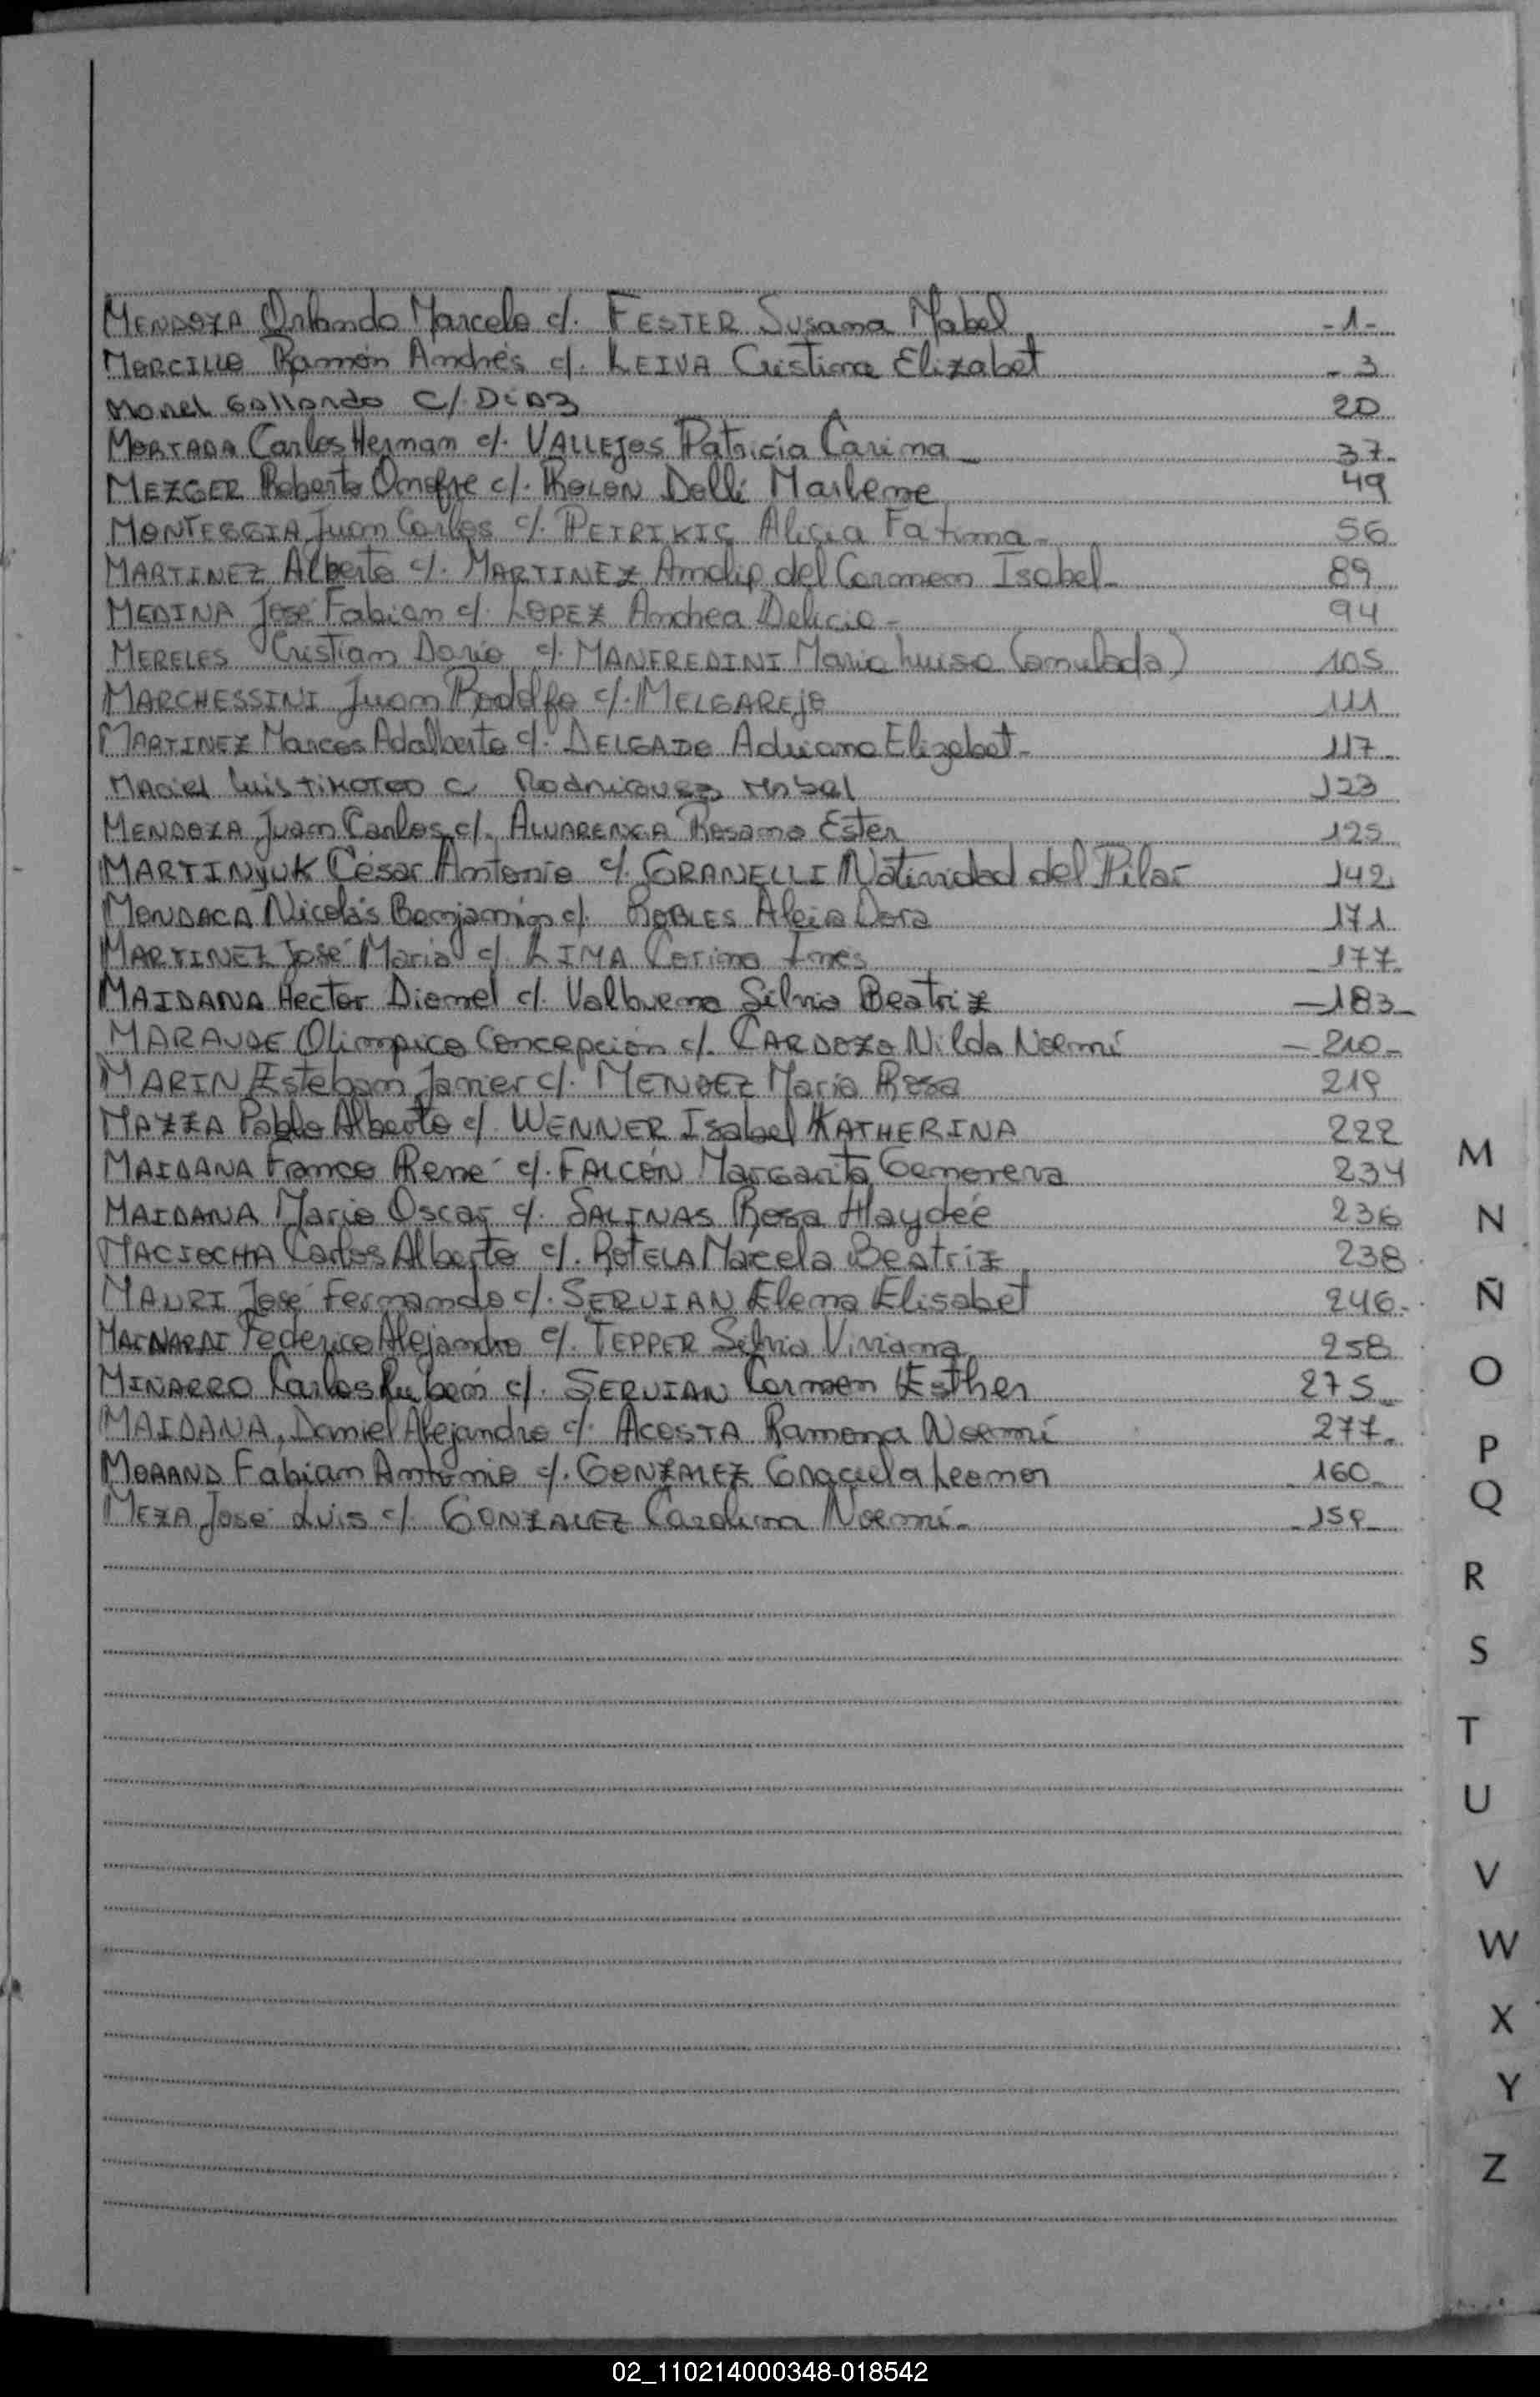 MENDOZA Orlando Marcelo c/. FESTER Susana Mabel -1-
MORCILLO Ramón Andrés c/. LEIVA Cristina Elizabet - 3
MOREL GALLARDO C/ DIAZ 20
MORTADA Carlos Hernan c/. VALLEJOS Patricia Carina - 37-
MEZGER Roberto Onofre c/. KOLON Delli Marlene 49
MONTEGGIA Juan Carlos c/. PETRIKIC Alicia Fatima - 56
MARTINEZ Alberto c/. MARTINEZ del Carmen Isabel - 89
MEDINA José Fabian c/. LOPEZ Andrea Delicia - 94
MERELES Cristian Dario c/. MANFREDINI Maria Luisa (anulada) 105
MARCHESSINI Juan Rodolfo c/. MELGAREJO 111
MARTINEZ Marcos Adalberto c/. DELGADO Adriana Elizabet - 117-
MACIEL Luis TIMOTEO C/ RODRIGUEZ MABEL 123
MENDOZA Juan Carlos c/. ALVARENGA Rosana Ester 125
MARTINYUK César Antonio c/. GRANELLI Natividad del Pilar 142
MENDACA Nicolás Benjamin c/. ROBLES Dora 171
MARTINEZ José Maria c/. LIMA Corina Ines 177-
MAIDANA Hector c/. Valbuena Silvia Beatriz - 183 -
MARAUDE Concepción c/. CARDOZO Nilda Noemí - 210 -
MARIN Esteban Javier c/. MENDEZ Maria Rosa 219
MAZZA Pablo Alberto c/. WENNER Isabel KATHERINA 222
MAIDANA Franco René c/. FALCÓN Margarita Genoveva 234
MAIDANA Mario Oscar c/. SALINAS Rosa Haydée 236
MACIOCHA Carlos Alberto c/. ROTELA Marcela Beatriz 238
MAURI José Fernando c/. SERVIAN Elena Elisabet 246-
Federico Alejandro c/. TEPPER Silvia Viviana 258
MINARRO Carlos Rubén c/. SERVIAN Carmen Esther 275
MAIDANA, Daniel Alejandro c/. ACOSTA Ramona Noemí 277-
MORAND Fabian Antonio c/. GONZALEZ Graciela Leonor 160
MEZA José Luis c/. GONZALEZ Carolina Noemí - 159
M
N
Ñ
O
P
Q
R
S
T
U
V
W
X
Y
Z
02_110214000348-018542